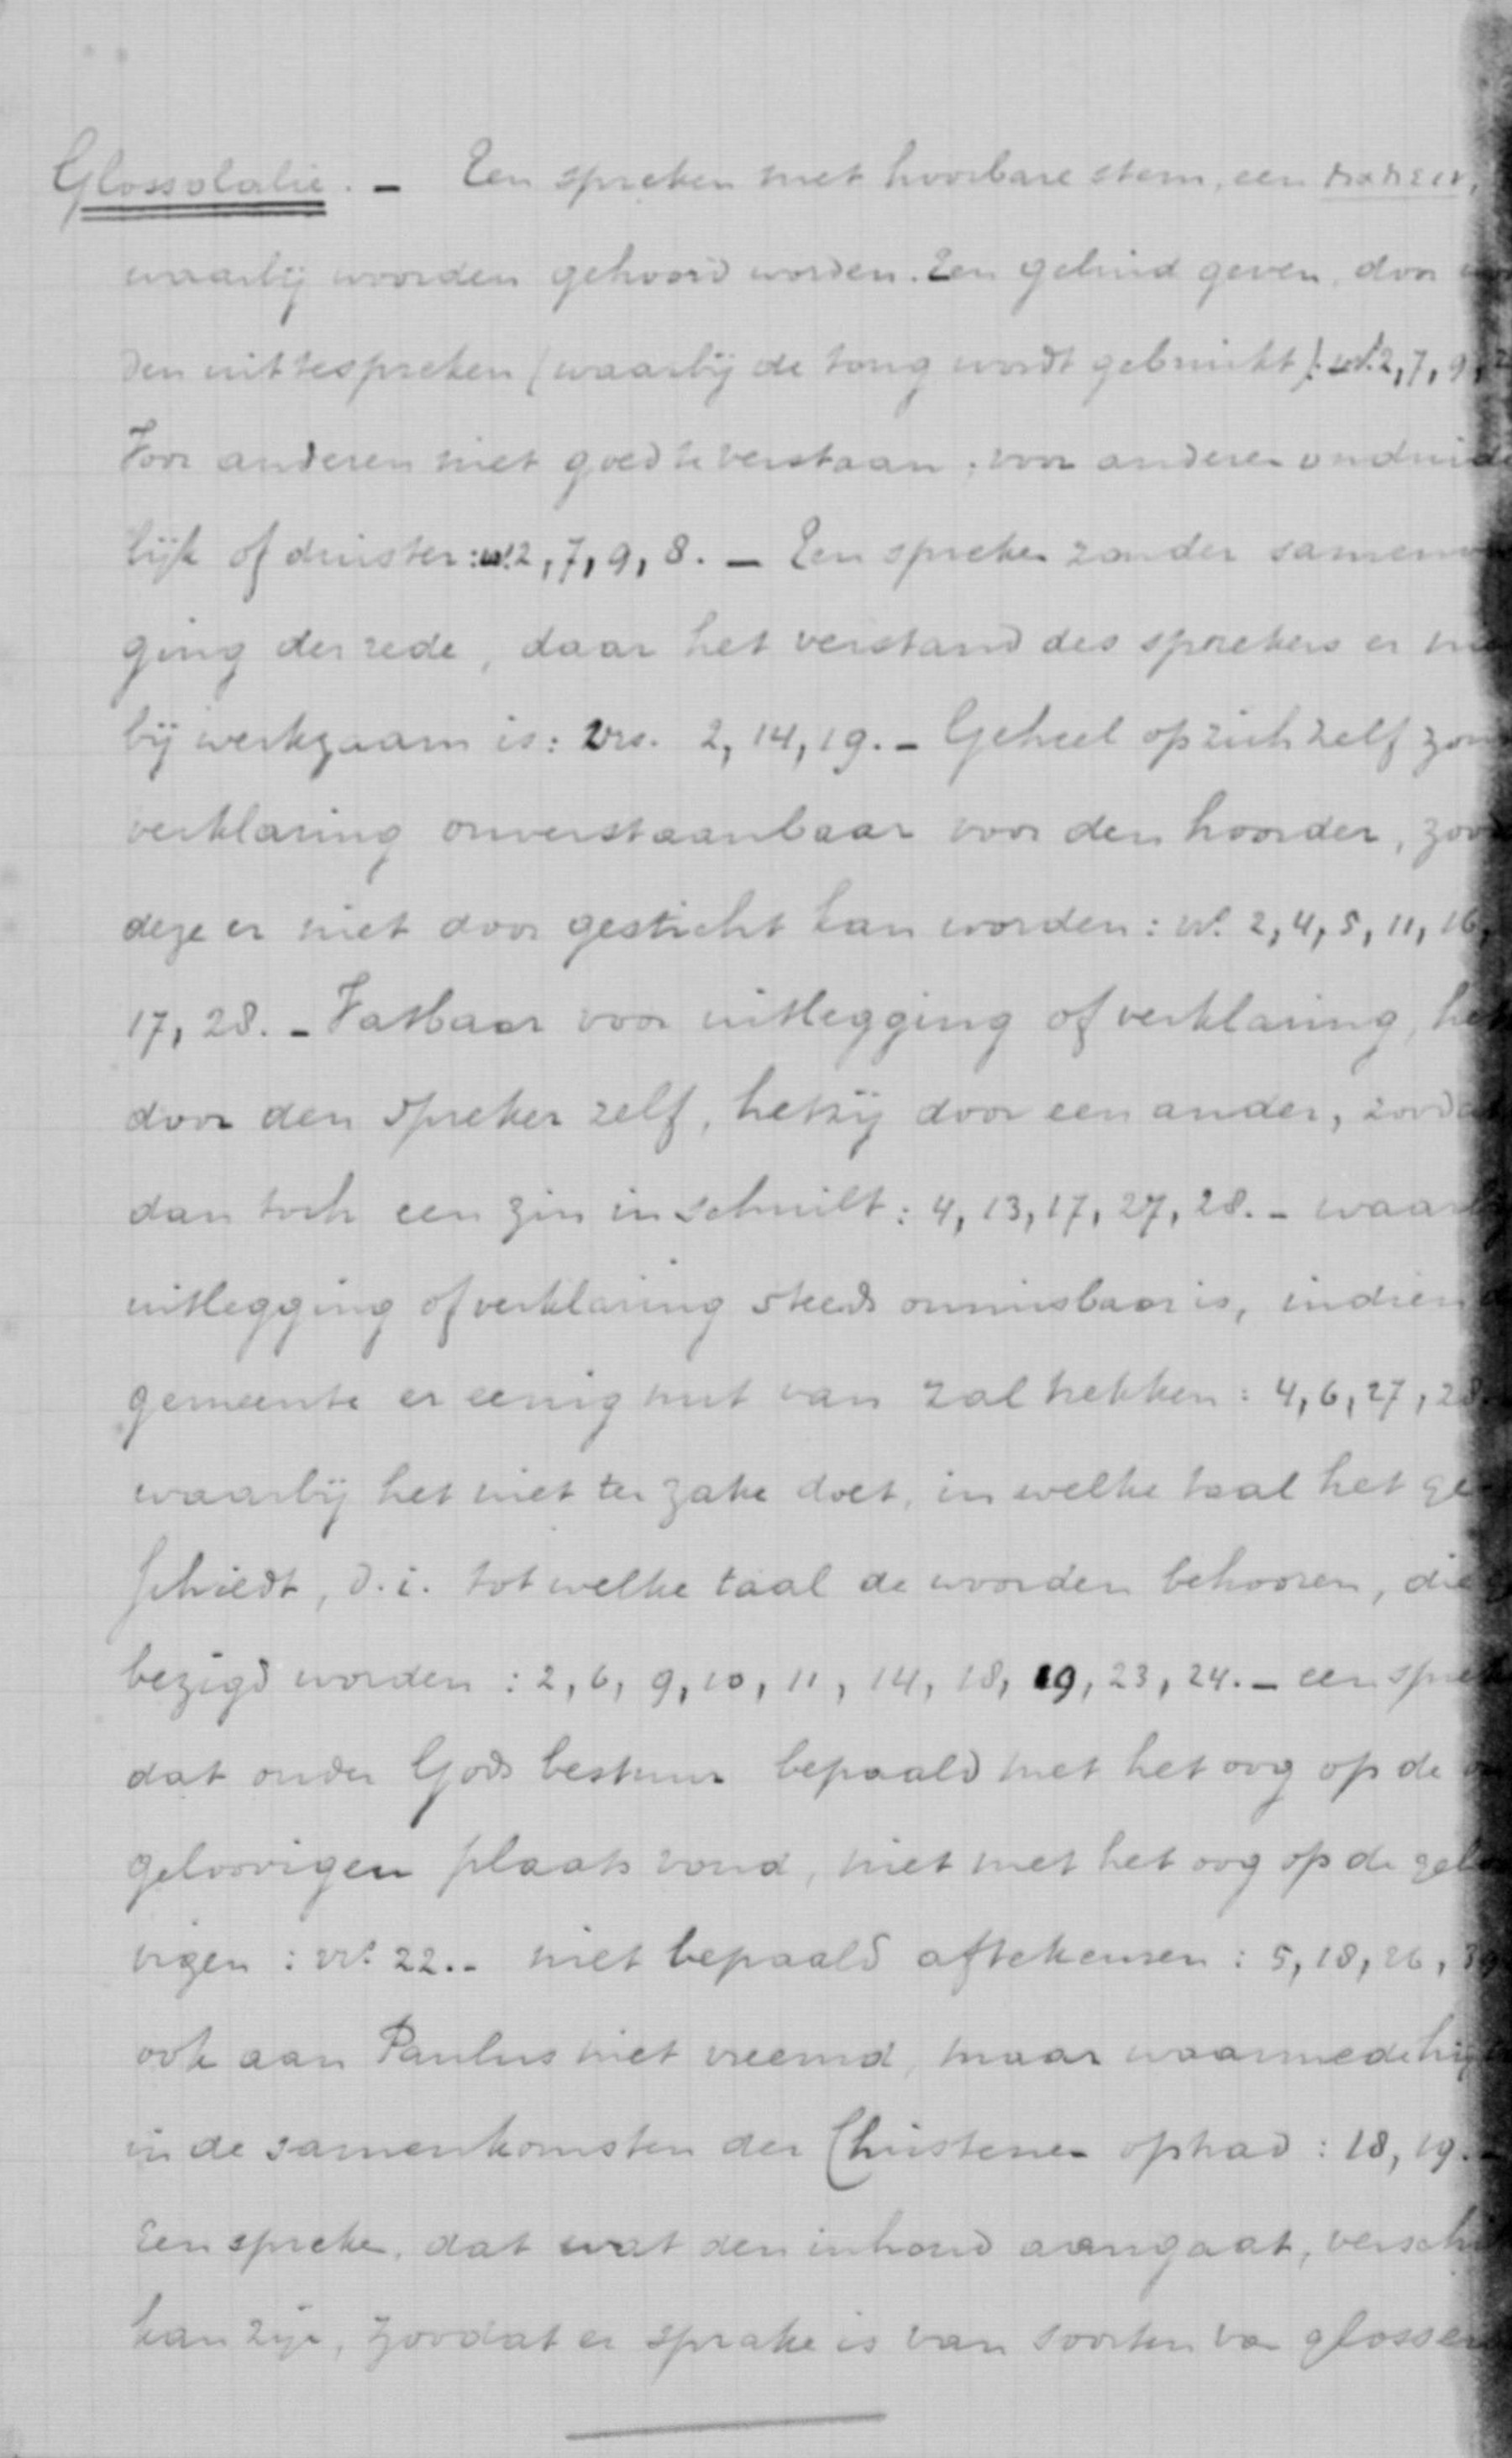 Glossolalie. – Een spreken met hoorbare stem, een λαλειν,
waarbij woorden gehoord worden. Een geluid geven, door
den uittespreken (waarbij de tong wordt gebruikt): vs. 2, 7, 9,
Voor anderen niet goed te verstaan, voor anderen onduide
lijk of duister: vs. 2, 7, 9, 8. – Een spreken zonder samenvoe
ging der rede, daar het verstand des sprekers er
bij werkzaam is: Vrs. 2, 14, 19. – Geheel op zich zelf
verklaring onverstaanbaar voor den hoorder,
deze er niet door gesticht kan worden: vs. 2, 4, 5, 11, 16,
17, 28. – Vatbaar voor uitlegging of verklaring,
door den spreker zelf, hetzij door een ander, zoodat
dan toch een zin in schuilt: 4, 13, 17, 27, 28. –
uitlegging of verklaring steeds onmisbaar is, indien
gemeente er eenig nut van zal trekken: 4, 6, 27, 28.
waarbij het niet ter zake doet, in welke taal het ge-
schiedt, d.i. tot welke taal de woorden behooren, die
bezigd worden: 2, 6, 9, 10, 11, 14, 18, 19, 23, 24. – een
dat onder Gods bestuur bepaald met het oog op de
geloovigen plaats vond, niet met het oog op de geloo
vigen: vs. 22. – niet bepaald aftekeuren: 5, 18, 26, 39
ook aan Paulus niet vreemd, maar waarmede hij
in de samenkomsten der Christenen ophad: 18, 19. –
Een spreken, dat wat den inhoud aangaat,
kan zijn, zoodat er sprake is van soorten van glossen